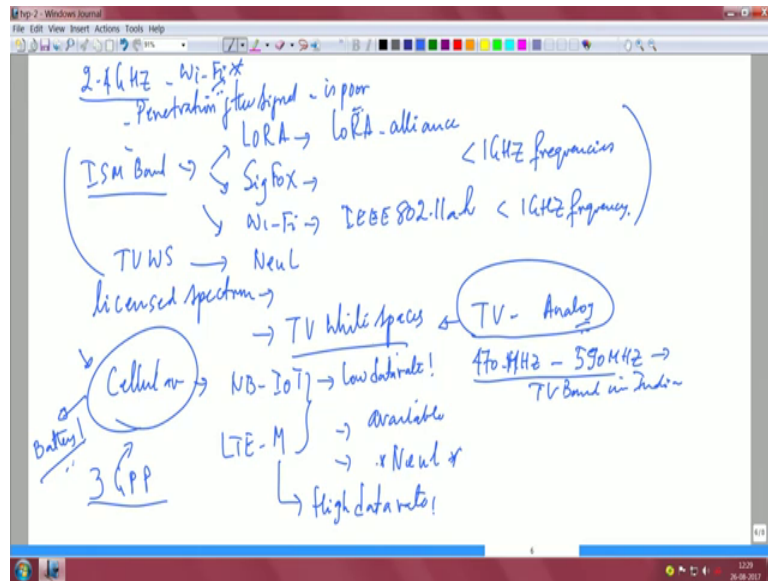 hvp-2 - Windows Journal
File Edit View Insert Actions Tools Help
91%
B I
2.4GHZ - Wi-Fi x
- Penetration of the signal - is poor
LORA → LORA-alliance
ISM Band → SigFox → < 1GHZ frequencies
Wi-Fi → IEEE 802.11ah < 1GHZ frequency.
TVWS → Neul
licensed spectrum →
→ TV White spaces ← TV - Analog
470 MHZ - 590 MHZ →
TV Band in India
Cellular → NB-IoT → Low data rate!
Battery!
LTE-M → available
→ * Neul *
3GPP
→ High data rate!
6
6/6
12:29
26-08-2017